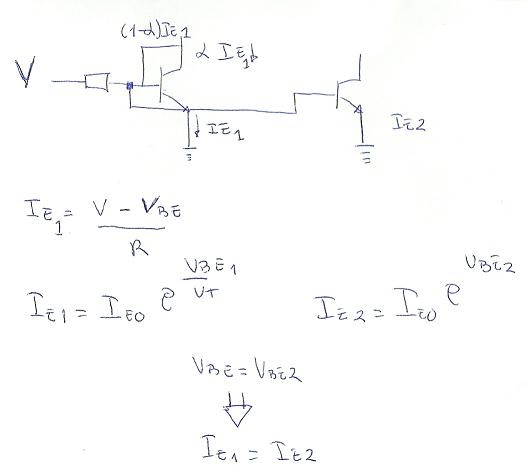 (1-α)IE1
α IE1↓
V
↓ IE1
IE2
IE1 = V - VBE
R
IE1 = IE0 e VBE1
VT
IE2 = IE0 e VBE2
VBE = VBE2
⇓
IE1 = IE2